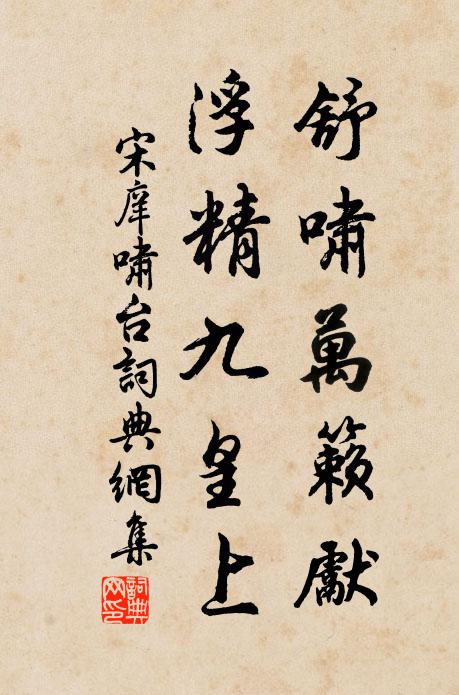 舒嘯萬籟獻
浮精九皇上
宋庠嘯台詞典網集
詞典
网印